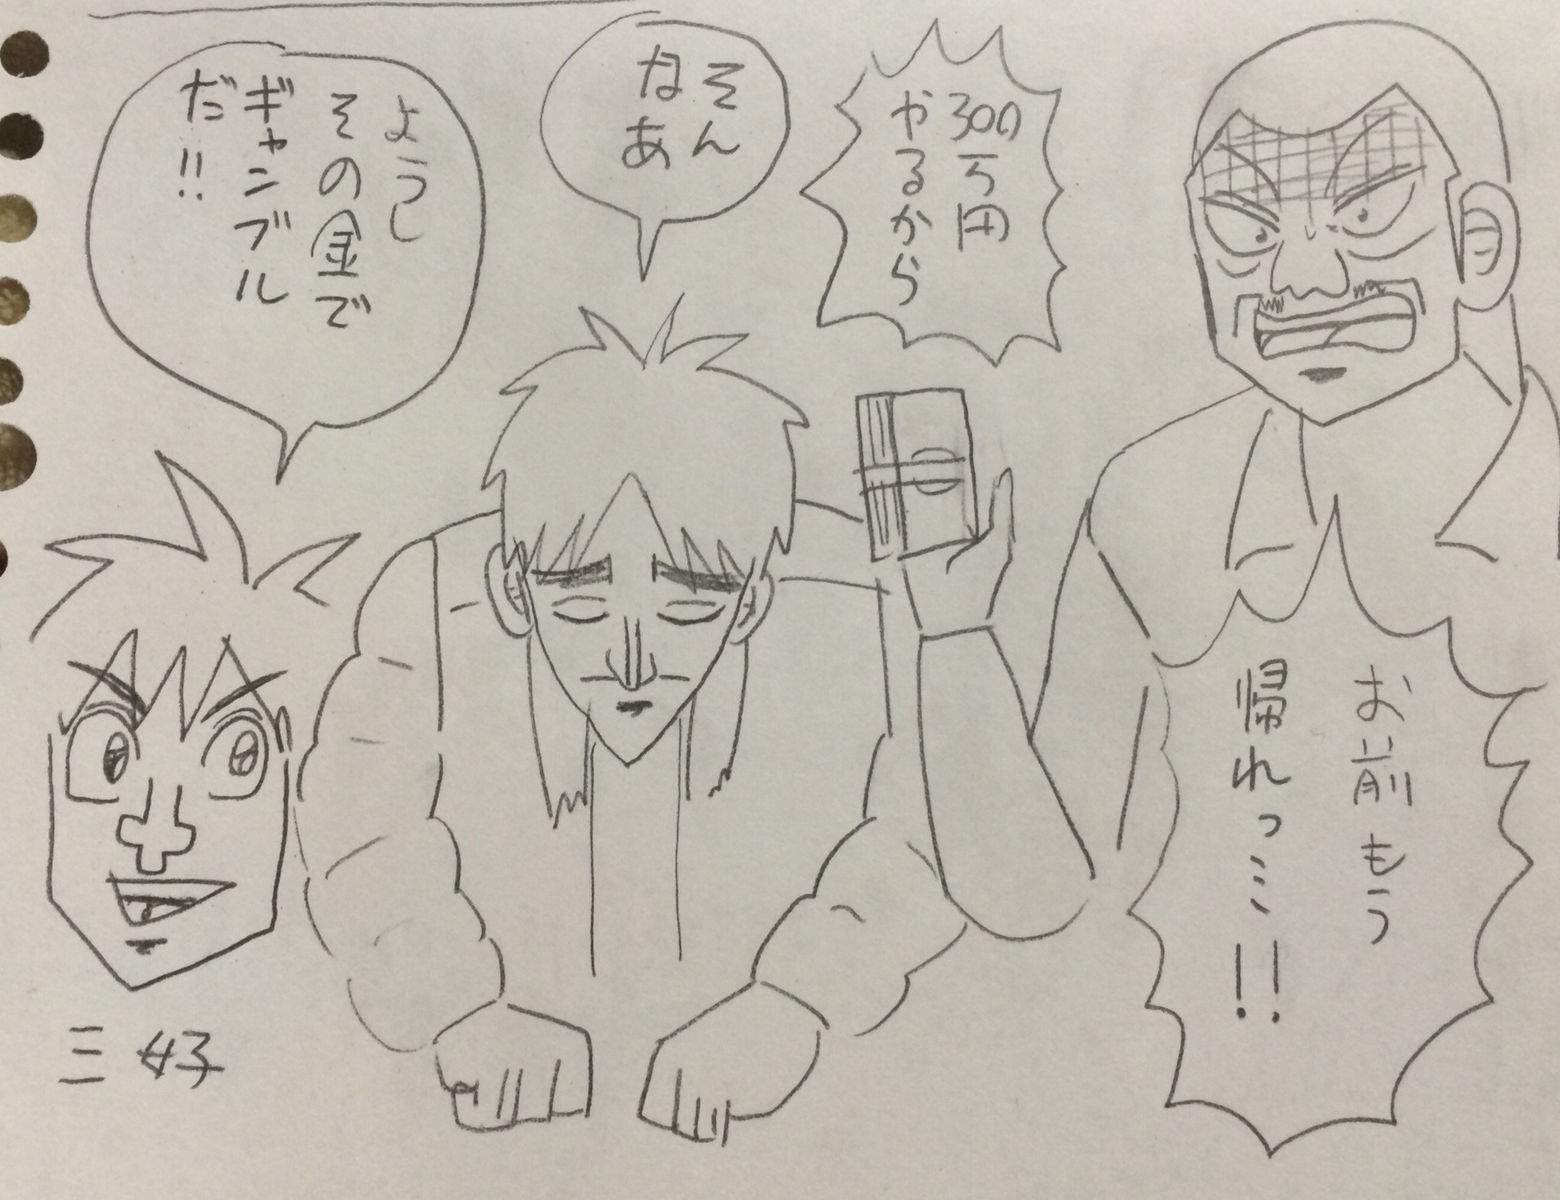 300万円
やるから
お前もう
帰れっ…!!
そん
なあ
ようし
その金で
ギャンブル
だ!!
三好